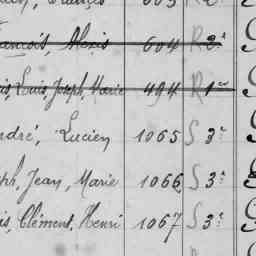 François 603 R 2e
François, Alexis 604 R 2e
Louis, Joseph, Marie 494 R 1er
André, Lucien 1065 S 3e
Jean, Marie 1066 S 3e
Clément, Henri 1067 S 3e